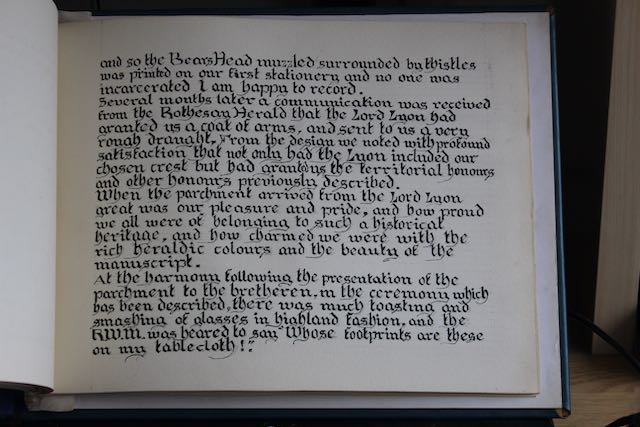 and so the Bears Head muzzled surrounded by thistles
was printed on our first stationery and no one was
incarcerated I am happy to record.
Several months later a communication was received
from the Rothesay Herald that the Lord Lyon had
granted us a coat of arms, and sent to us a very
rough draught. From the design we noted with profound
satisfaction that not only had the Lyon included our
chosen crest but had granted us the territorial honours
and other honours previously described.
When the parchment arrived from the Lord Lyon
great was our pleasure and pride, and how proud
we all were of belonging to such a historical
heritage, and how charmed we were with the
rich heraldic colours and the beauty of the
manuscript.
At the harmony following the presentation of the
parchment to the bretheren, in the ceremony which
has been described, there was much toasting and
smashing of glasses in highland fashion, and the
R.W.M. was heared to say "Whose footprints are these
on my tablecloth!?"